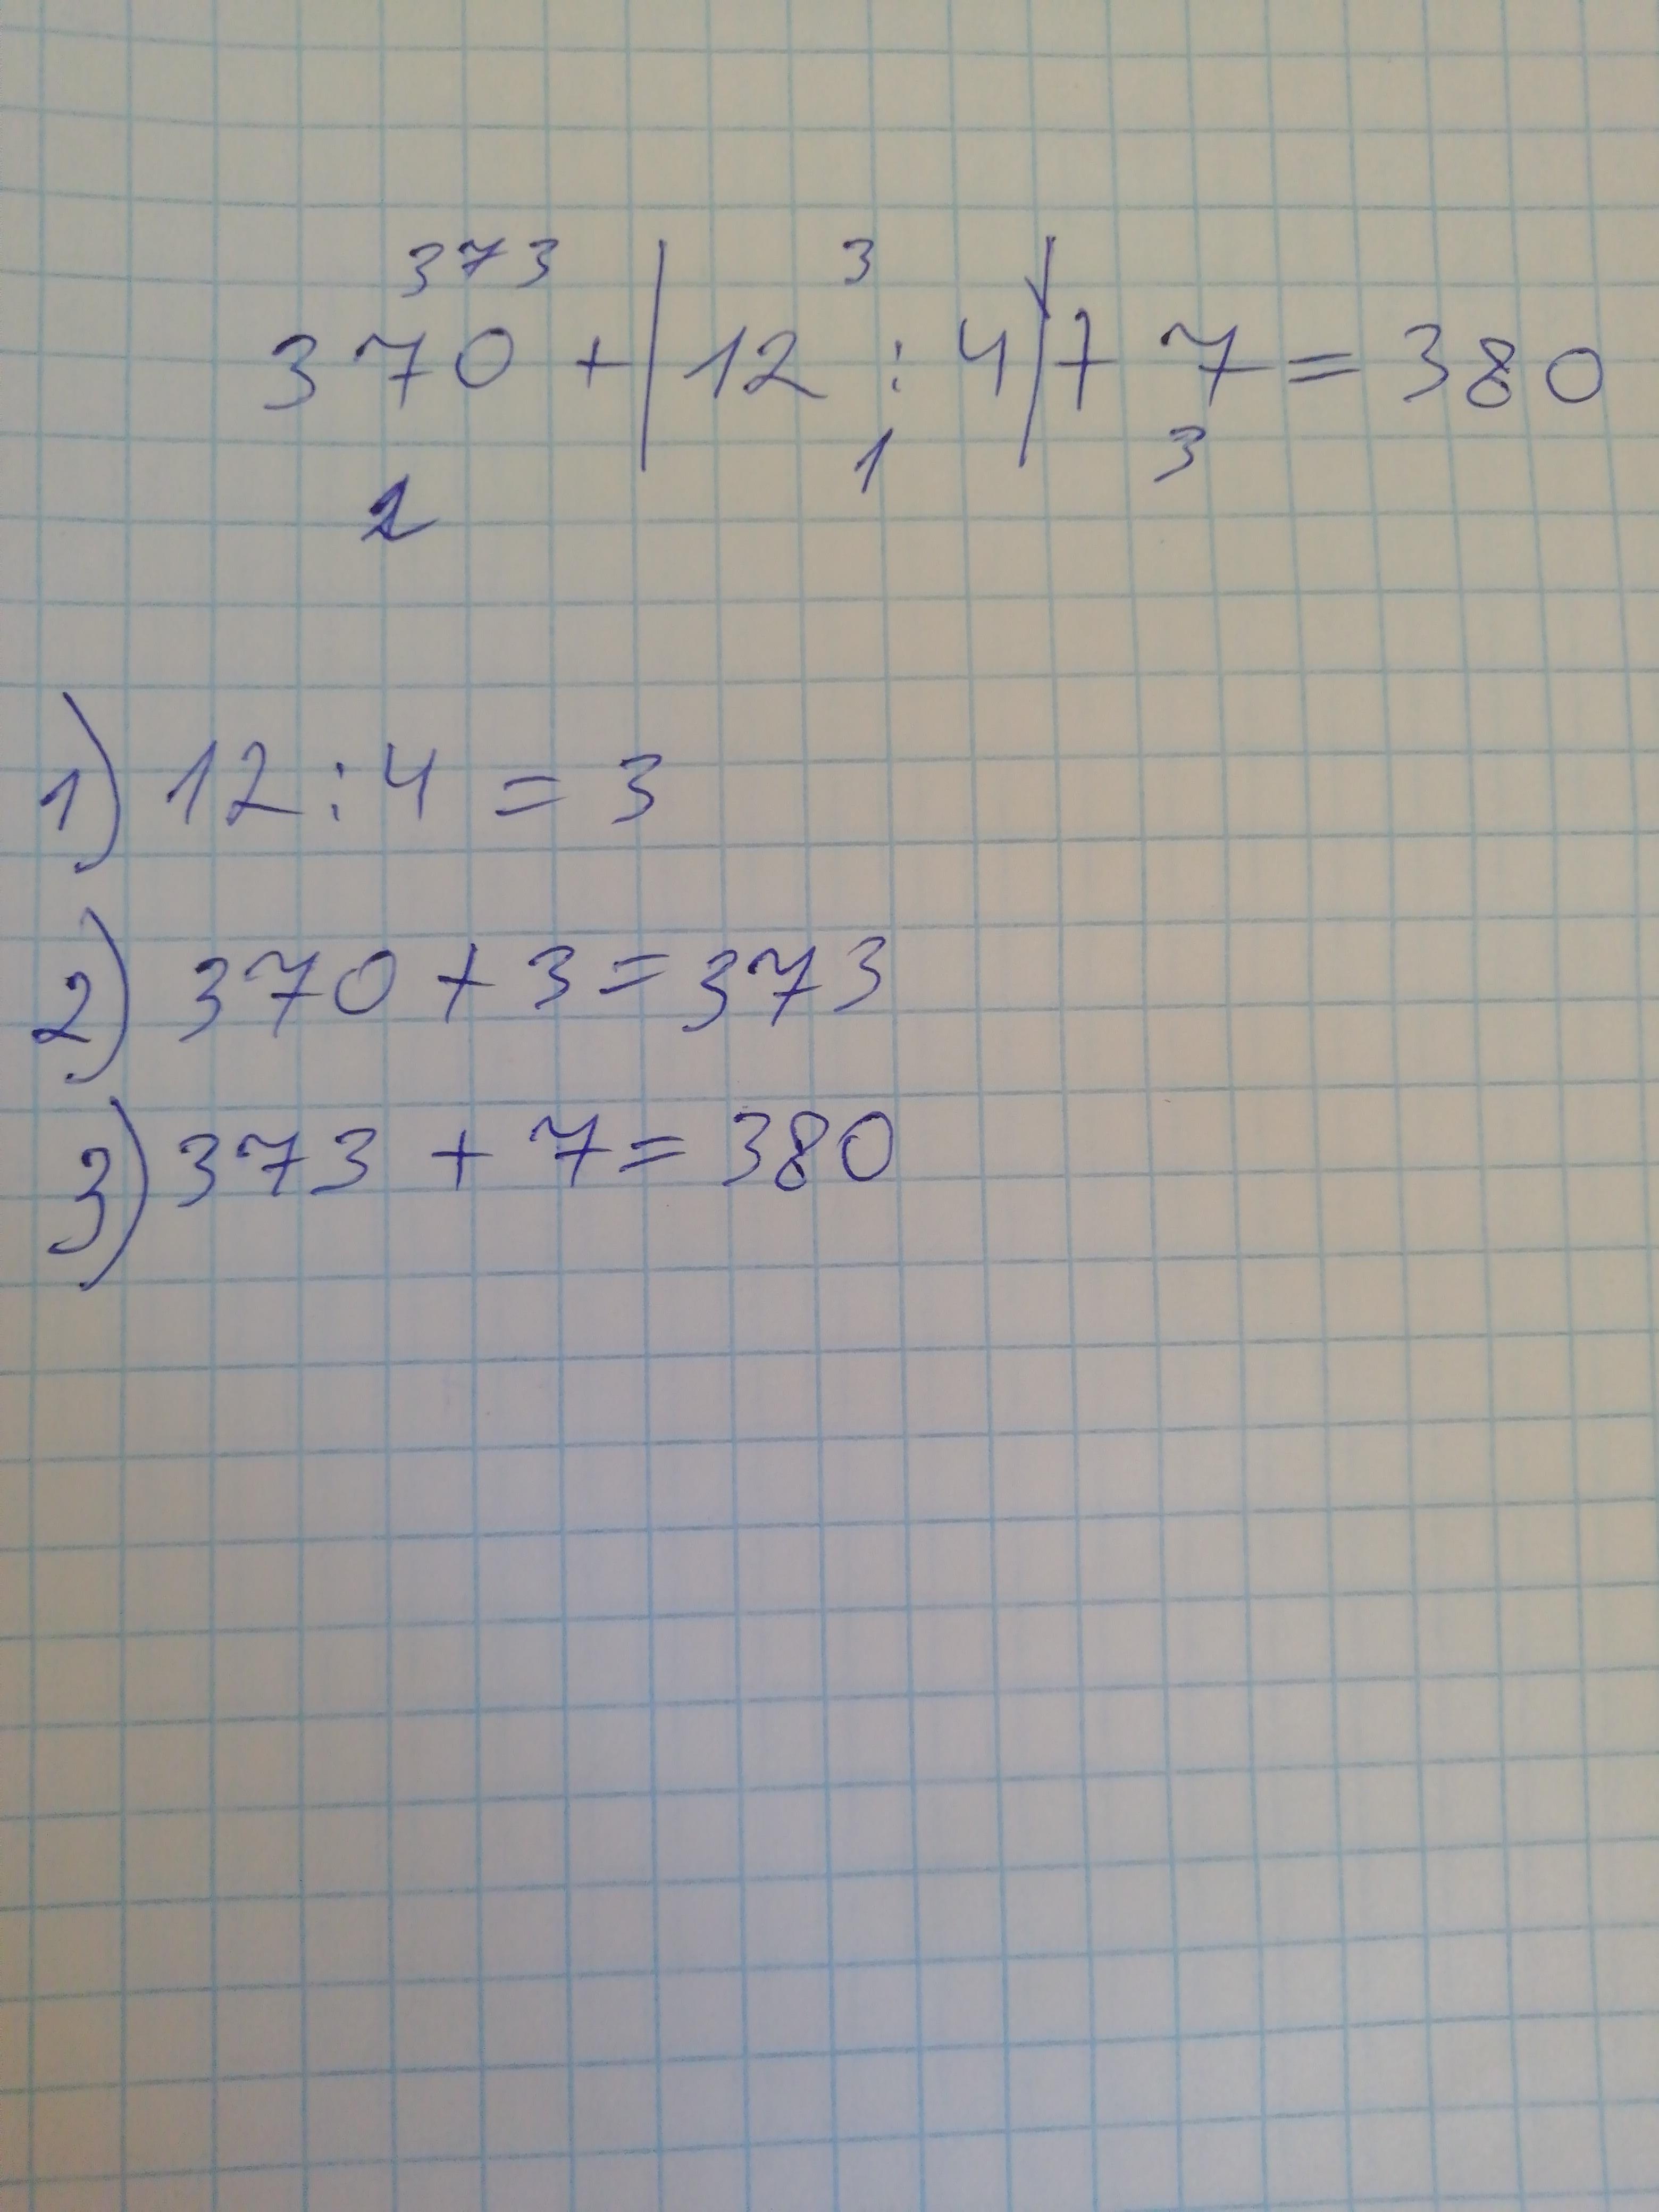 373 3
370 + | 12 : 4 | + 7 = 380
1 3
2
1) 12 : 4 = 3
2) 370 + 3 = 373
3) 373 + 7 = 380